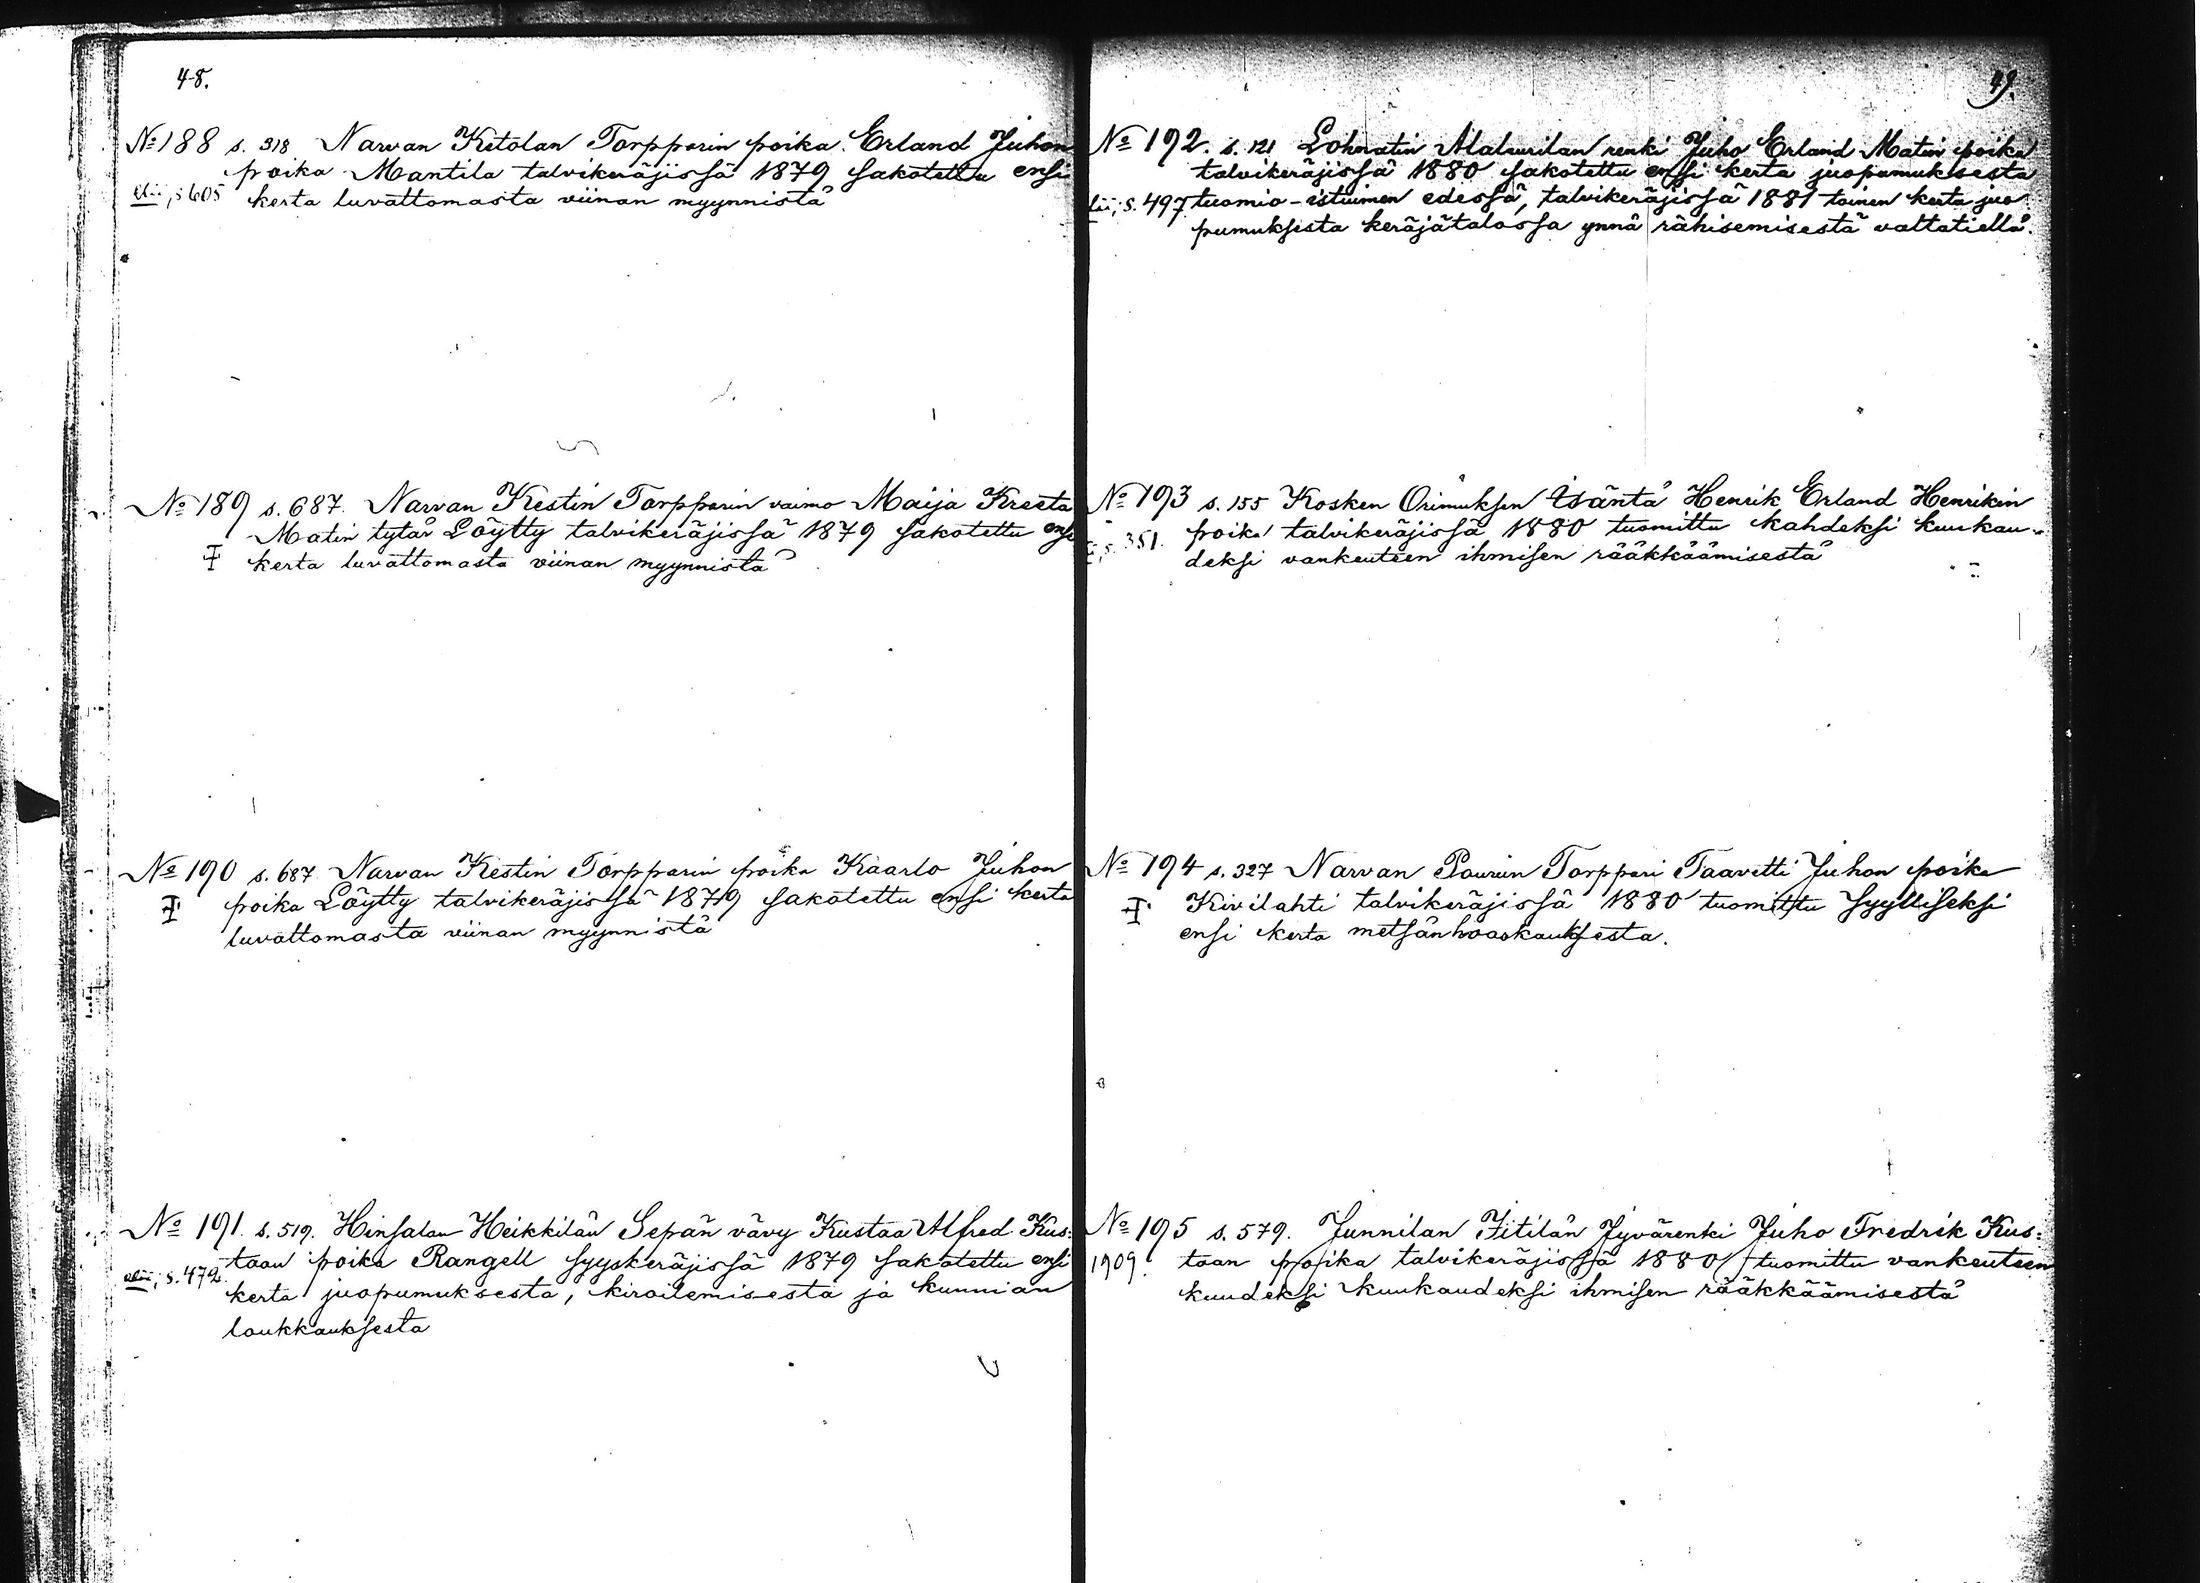 48.
No 188 s. 318 Narvan Ketolan Torpparin poika Erland Juhon
poika Mantila talvikeräjissä 1879 sakotettu ensi
elii, s 605 kerta luvattomasta viinan myynnistä
No 189 s. 687. Narvan Kestin Torpparin vaimo Maija Kreeta
Matin tytär Löytty talvikeräjissä 1879 sakotettu ensi
kerta luvattomasta viinan myynnistä
No 190 s. 687 Narvan Kestin Torpparin poika Kaarlo Juhon
poika Löytty talvikeräjissä 1879 sakotettu ensi kerta
luvattomasta viinan myynnistä
No 191. s. 519. Hinsalan Heikkilän Sepän vävy Kustaa Alfred Kus:
taan poika Rangell syyskeräjissä 1879 sakotettu ensi
elii, s. 472. kerta juopumuksesta, kiroilemisesta ja kunnian
loukkauksesta
49.
No 192. s. 121 Lohnatin Alaluurilan renki Juho Erland Matin poika
talvikeräjissä 1880 sakotettu ensi kerta juopumuksesta
s. 497 tuomio-istuimen edessä, talvikeräjissä 1881 toinen kerta juo
pumuksesta keräjätalossa ynnä rähisemisestä valtatiellä.
No 193 s. 155 Kosken Orimuksen Isäntä Henrik Erland Henrikin
s. 351. poika talvikeräjissä 1880 tuomittu kahdeksi kuukau-
deksi vankeuteen ihmisen rääkkäämisestä
No 194 s. 327 Narvan Pourun Torppari Taavetti Juhon poika
Kivilahti talvikeräjissä 1880 tuomittu syylliseksi
ensi kerta metsänhaaskauksesta.
No 195 s. 579. Junnilan Iitilän Jyvärenki Juho Fredrik Kus:
1909. taan poika talvikeräjissä 1880 tuomittu vankeuteen
kuudeksi kuukaudeksi ihmisen rääkkäämisestä